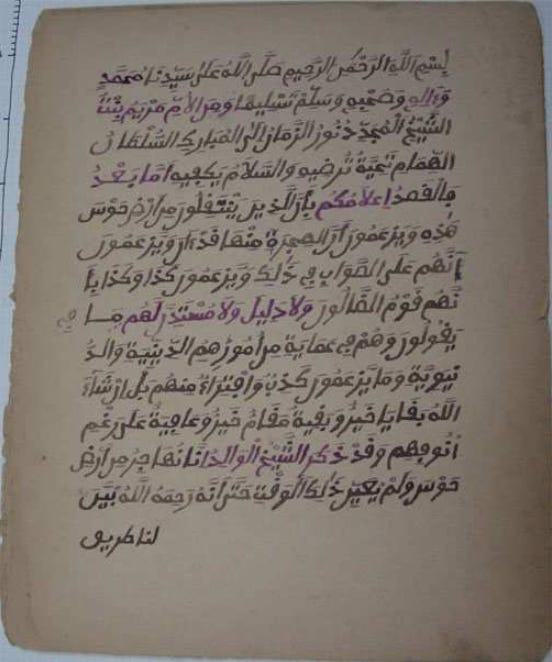 بِسْمِ اللَّهِ الرَّحْمَٰنِ الرَّحِيمِ صَلَّى اللَّهُ عَلَى سَيِّدِنَا مُحَمَّدٍ
وَءَالِهِ وَصَحْبِهِ وَسَلَّمَ تَسْلِيمًا وَمِنَ الأُمِّ مَرْيَمَ بِنْتِ
الشَّيْخِ الْمُجَدِّدُ نُورُ الزَّمَانِ إِلَى الْمُبَارَكِ السُّلْطَانِ
الهُمَامِ تَحِيَّةً تُرْضِيهِ وَالسَّلَامُ يَكْفِيهِ أَمَّا بَعْدُ
فَالْقَصْدُ إِعْلَامُكُمْ بِأَنَّ الَّذِينَ يَنْتَقِلُونَ مِنْ أَرْضِ حَوْسَ
هَٰذِهِ وَيَزْعُمُونَ أَنَّ الهِجْرَةَ مِنْهَا قَدْ ءَانَ وَيَزْعُمُونَ
أَنَّهُمْ عَلَى الصَّوَابِ فِي ذَٰلِكَ وَيَزْعُمُونَ كَذَا وَكَذَا بِأَ
نَّهُمْ قَوْمُ الضَّالُونَ وَلَا دَلِيلَ وَلَا مُسْتَنَدَ لَهُمْ فِيمَا
يَقُولُونَ وَهُمْ فِي عَمَايَةٍ مِنْ أُمُورِهِمُ الدِّينِيَّةِ وَالدُّ
نْيَوِيَّةِ وَمَا يَزْعُمُونَ كَذِبٌ وَافْتِرَاءٌ مِنْهُمْ بَلْ إِنْ شَآءَ
اللَّهُ بَقَايَا خَيْرٌ وَبَقِيَةُ مَقَامُ خَيْرٌ وَعَافِيَةٌ عَلَى رَغْمِ
أُنُوفِهِم وَقَدْ ذَكَرَ الشَّيْخُ الْوَالِدُ أَنَا نُهَاجِرُ مِنْ أَرْضِ
حَوْسَ وَلَمْ يُعَيِّنْ ذَٰلِكَ الْوَقْتِ حَتَّى أَنَّهُ رَحِمَهُ اللَّهُ بَيَّنَ
لنا طريق